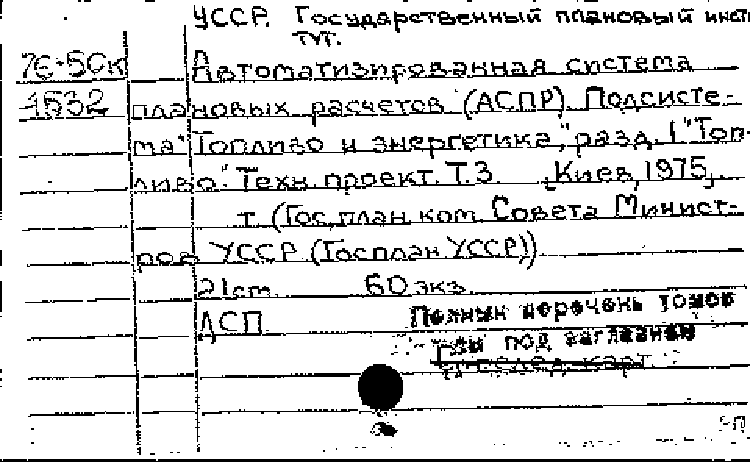 УССР. Государственный плановый инсти
тут.
76-5Ск Автоматизированная система
1532 плановых расчетов (АСПР). Подсисте-
ма "Топливо и энергетика", разд. 1 "Топ-
ливо". Техн. проект. Т. 3. Киев, 1975,
т. (Гос. план. ком. Совета Минист-
ров УССР (Госплан УССР))
21 cm. 60 экз.
ДСП.
Полный перечень томов
под заглавием
след. карт.